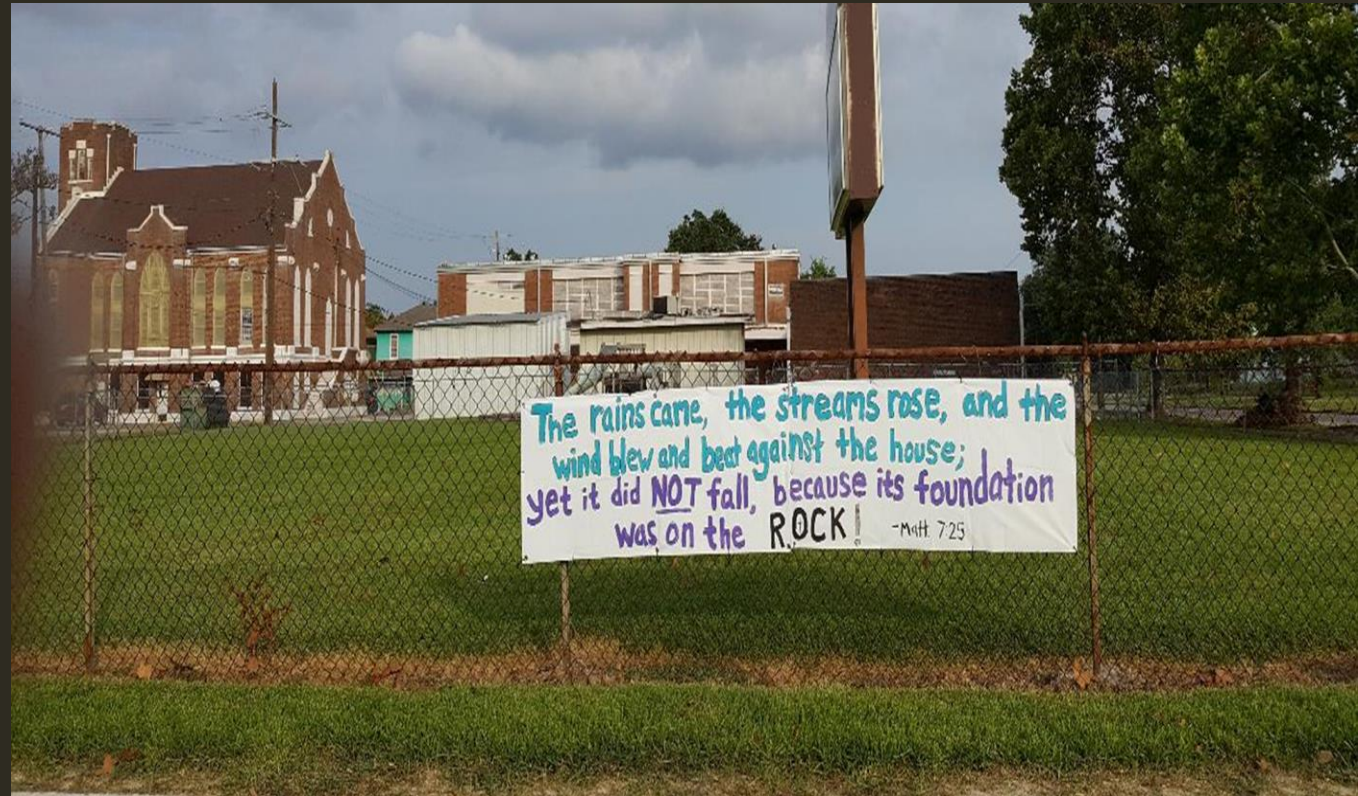 The rains came, the streams rose, and the
wind blew and beat against the house;
yet it did NOT fall, because its foundation
was on the ROCK! -Matt. 7:25